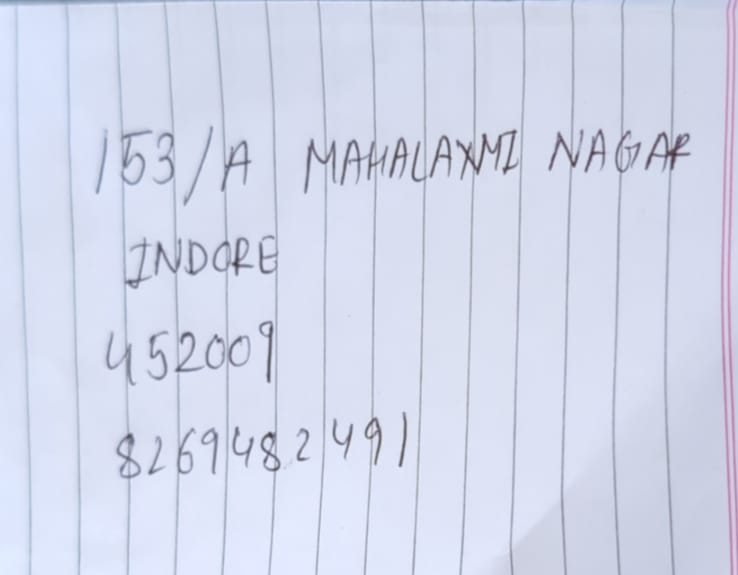 153/A MAHALAXMI NAGAR
INDORE
452009
8269482491